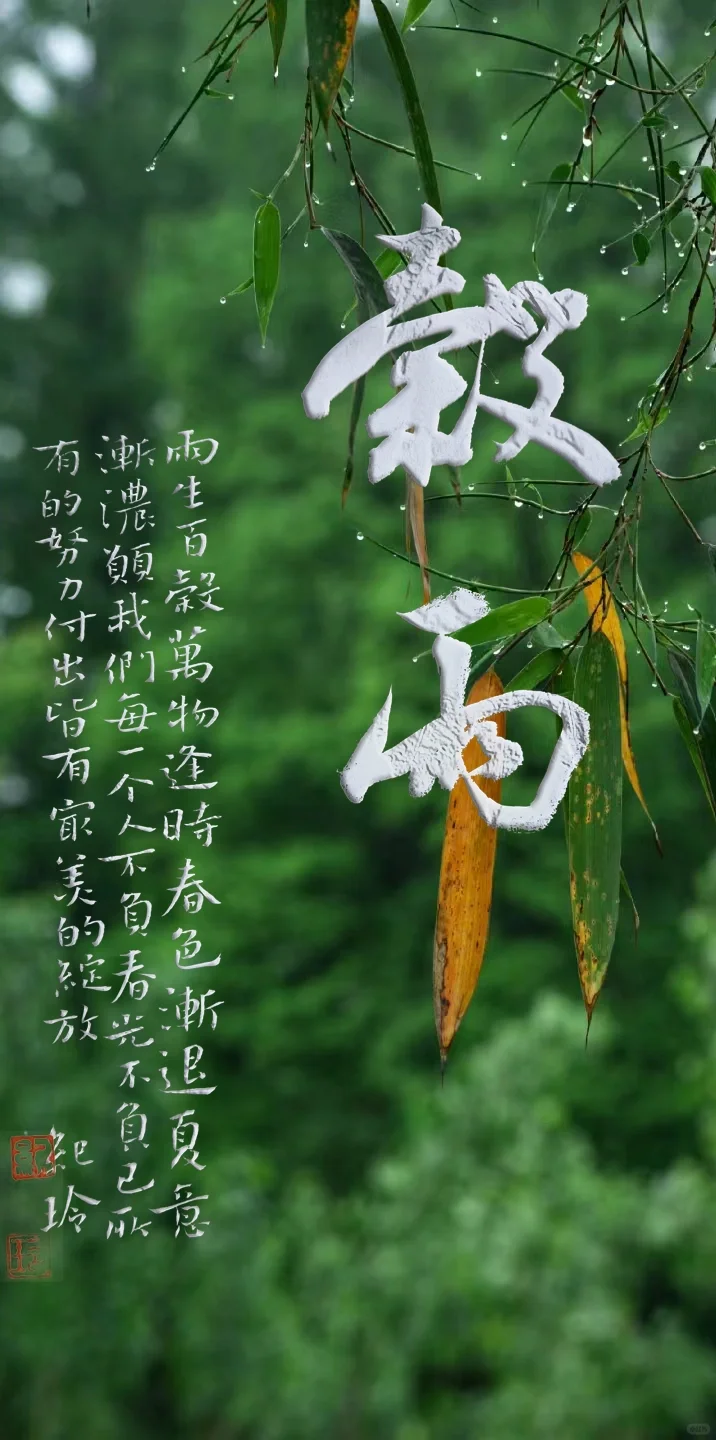 穀雨
雨生百穀萬物逢時春色漸退夏意
漸濃願我們每一个人不負春光不負己所
有的努力付出皆有寂美的綻放
紀玲